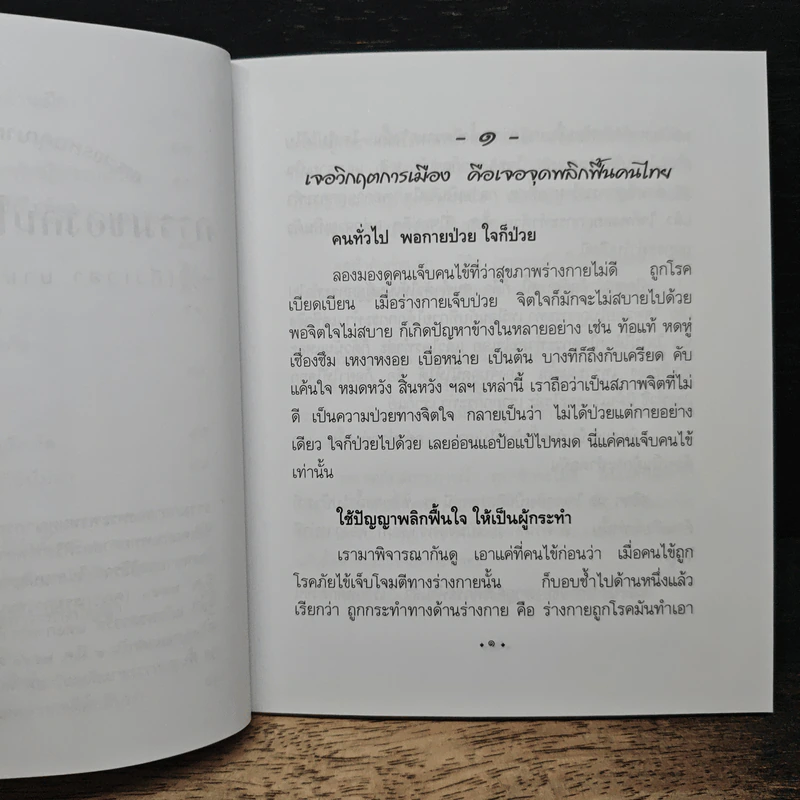 - ๑ -
เจอวิกฤตการเมือง คือเจอจุดพลิกฟื้นคนไทย
คนทั่วไป พอกายป่วย ใจก็ป่วย
ลองมองดูคนเจ็บคนไข้ที่ว่าสุขภาพร่างกายไม่ดี ถูกโรค
เบียดเบียน เมื่อร่างกายเจ็บป่วย จิตใจก็มักจะไม่สบายไปด้วย
พอจิตใจไม่สบาย ก็เกิดปัญหาข้างในหลายอย่าง เช่น ท้อแท้ หดหู่
เซื่องซึม เหงาหงอย เบื่อหน่าย เป็นต้น บางทีก็ถึงกับเครียด คับ
แค้นใจ หมดหวัง สิ้นหวัง ฯลฯ เหล่านี้ เราถือว่าเป็นสภาพจิตที่ไม่
ดี เป็นความป่วยทางจิตใจ กลายเป็นว่า ไม่ได้ป่วยแต่กายอย่าง
เดียว ใจก็ป่วยไปด้วย เลยอ่อนแอป้อแป้ไปหมด นี่แค่คนเจ็บคนไข้
เท่านั้น
ใช้ปัญญาพลิกฟื้นใจ ให้เป็นผู้กระทำ
เรามาพิจารณากันดู เอาแค่ที่คนไข้ก่อนว่า เมื่อคนไข้ถูก
โรคภัยไข้เจ็บโจมตีทางร่างกายนั้น ก็บอบช้ำไปด้านหนึ่งแล้ว
เรียกว่า ถูกกระทำทางด้านร่างกาย คือ ร่างกายถูกโรคมันทำเอา
• ๑ •